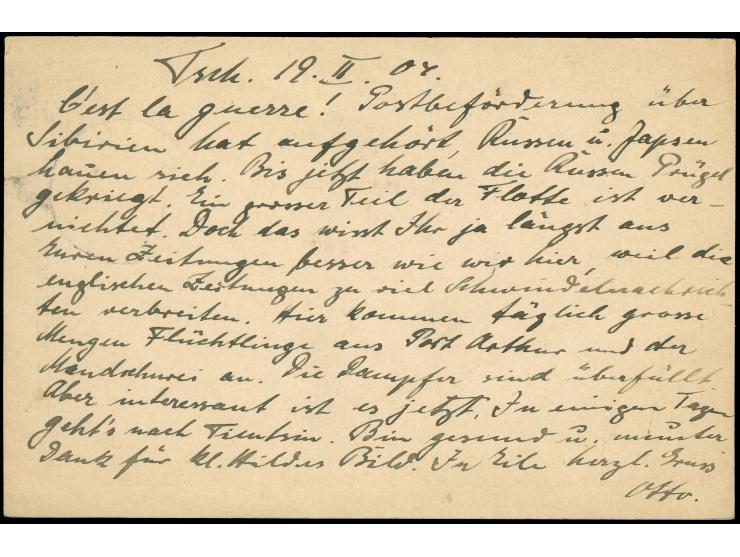 Tsch. 19. II. 04.
C'est la guerre! Postbeförderung über
Sibirien hat aufgehört, Russen u. Japsen
hauen sich. Bis jetzt haben die Russen Prügel
gekriegt. Ein grosser Teil der Flotte ist ver-
nichtet. Doch das wisst Ihr ja längst aus
Euren Zeitungen besser wie wir hier, weil die
englischen Zeitungen zu viel Schwindelnachrich-
ten verbreiten. Hier kommen täglich grosse
Mengen Flüchtlinge aus Port Arthur und der
Mandschurei an. Die Dampfer sind überfüllt.
Aber interessant ist es jetzt. In einigen Tagen
geht's nach Tientsin. Bin gesund u. munter
Dank für kl. Hildes Bild. In Eile herzl. Gruss
Otto.